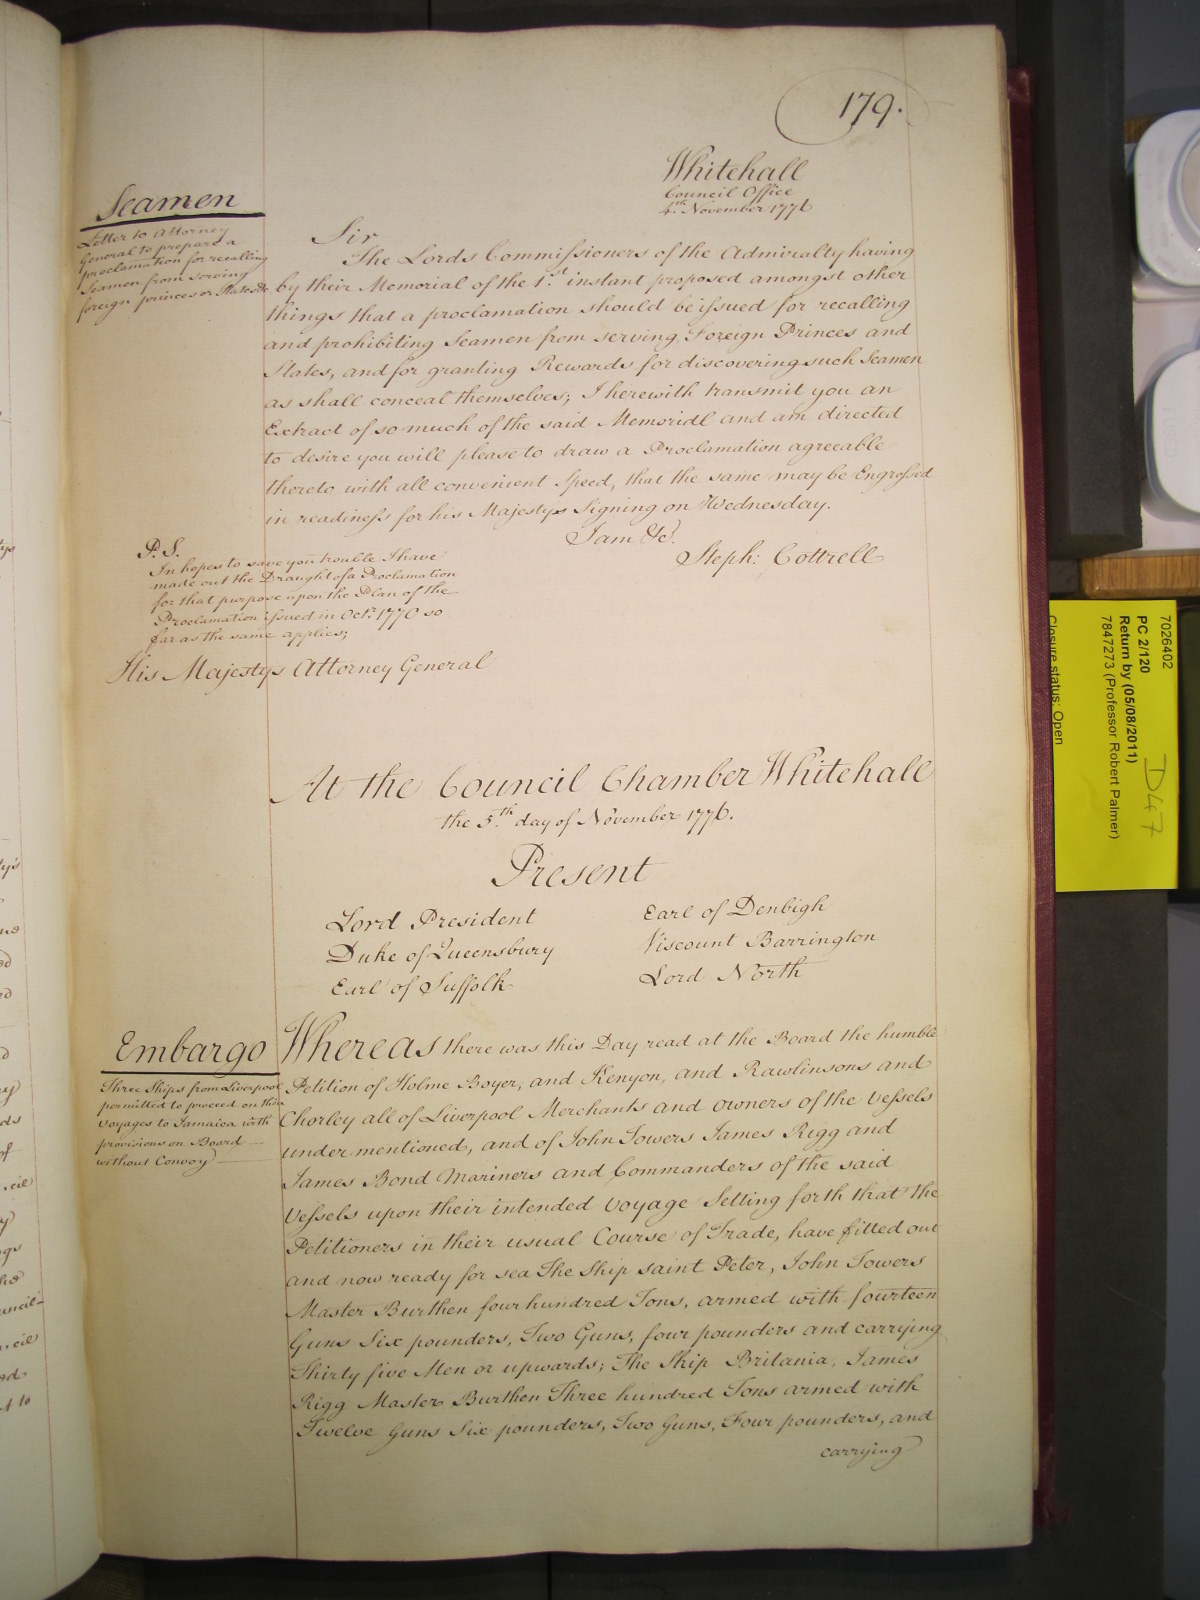 179.
Whitehall
Council Office
4th November 1776
Seamen
Letter to Attorney
General to prepare a
proclamation for recalling
Seamen from serving
foreign princes or States &c
Sir
The Lords Commissioners of the Admiralty having
by their Memorial of the 1st instant proposed amongst other
things that a proclamation should be issued for recalling
and prohibiting Seamen from serving Foreign Princes and
States, and for granting Rewards for discovering such Seamen
as shall conceal themselves; I herewith transmit you an
Extract of so much of the said Memorial and am directed
to desire you will please to draw a Proclamation agreeable
thereto with all convenient Speed, that the same may be Engrossed
in readiness for his Majestys Signing on Wednesday.
I am &c.
Steph: Cottrell
P.S.
In hopes to save you trouble I have
made out the Draught of a Proclamation
for that purpose upon the Plan of the
Proclamation issued in Octr. 1770 so
far as the same applies;
His Majestys Attorney General
At the Council Chamber Whitehall
the 5th day of November 1776.
Present
Lord President
Duke of Queensbury
Earl of Suffolk
Earl of Denbigh
Viscount Barrington
Lord North
Embargo
Three Ships from Liverpool
permitted to proceed on their
voyages to Jamaica with
provisions on Board
without Convoy
Whereas there was this Day read at the Board the humble
Petition of Holme Boyer, and Kenyon, and Rawlinsons and
Chorley all of Liverpool Merchants and owners of the Vessels
undermentioned, and of John Towers James Rigg and
James Bond Mariners and Commanders of the said
Vessels upon their intended Voyage Setting forth that the
Petitioners in their usual Course of Trade, have fitted out
and now ready for sea The Ship saint Peter, John Towers
Master Burthen four hundred Tons, armed with fourteen
Guns Six pounders, Two Guns, four pounders and carrying
Thirty five Men or upwards; The Ship Britania, James
Rigg Master Burthen Three hundred Tons armed with
Twelve Guns Six pounders, Two Guns, Four pounders, and
carrying
7026402
PC 2/120
Return by (05/08/2011)
7847273 (Professor Robert Palmer)
Closure status: Open
D47